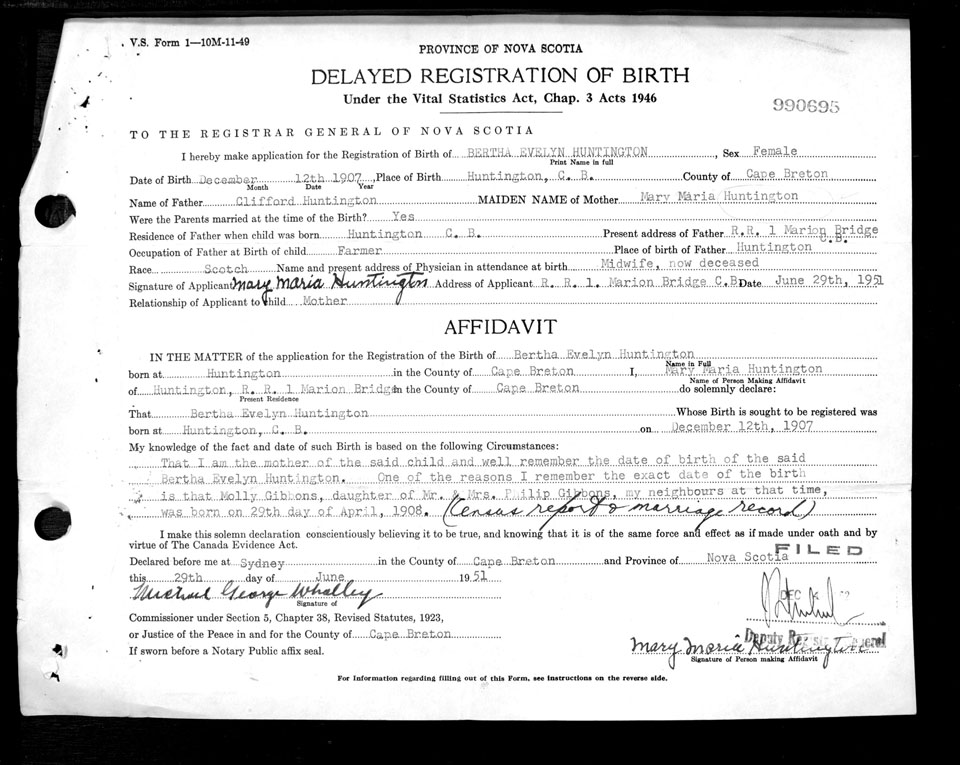 V.S. Form 1—10M-11-49
PROVINCE OF NOVA SCOTIA
DELAYED REGISTRATION OF BIRTH
Under the Vital Statistics Act, Chap. 3 Acts 1946
990695
TO THE REGISTRAR GENERAL OF NOVA SCOTIA
I hereby make application for the Registration of Birth of BERTHA EVELYN HUNTINGTON, Sex Female
Print Name in full
Date of Birth December 12th 1907, Place of Birth Huntington, C. B. County of Cape Breton
Month Date Year
Name of Father Clifford Huntington MAIDEN NAME of Mother Mary Maria Huntington
Were the Parents married at the time of the Birth? Yes
Residence of Father when child was born Huntington C. B. Present address of Father R.R. 1 Marion Bridge C.B.
Occupation of Father at Birth of child Farmer Place of birth of Father Huntington
Race Scotch Name and present address of Physician in attendance at birth Midwife, now deceased
Signature of Applicant Mary Maria Huntington Address of Applicant R. R. 1. Marion Bridge C.B Date June 29th, 1951
Relationship of Applicant to child Mother
AFFIDAVIT
IN THE MATTER of the application for the Registration of the Birth of Bertha Evelyn Huntington
Name in Full
born at Huntington in the County of Cape Breton I, Mary Maria Huntington
Name of Person Making Affidavit
of Huntington, R. R. 1 Marion Bridge in the County of Cape Breton do solemnly declare:
Present Residence
That Bertha Evelyn Huntington Whose Birth is sought to be registered was
born at Huntington, C. B. on December 12th, 1907
My knowledge of the fact and date of such Birth is based on the following Circumstances:
That I am the mother of the said child and well remember the date of birth of the said
Bertha Evelyn Huntington. One of the reasons I remember the exact date of the birth
is that Molly Gibbons, daughter of Mr. & Mrs. Philip Gibbons, my neighbours at that time,
was born on 29th day of April, 1908. (Census report & marriage record)
I make this solemn declaration conscientiously believing it to be true, and knowing that it is of the same force and effect as if made under oath and by
virtue of The Canada Evidence Act.
FILED
Declared before me at Sydney in the County of Cape Breton and Province of Nova Scotia
this 29th day of June 1951
DEC
Michael George Whalley
Signature of
Commissioner under Section 5, Chapter 38, Revised Statutes, 1923,
or Justice of the Peace in and for the County of Cape Breton
Deputy Registrar General
If sworn before a Notary Public affix seal.
Mary Maria Huntington
Signature of Person making Affidavit
For Information regarding filling out of this Form, see instructions on the reverse side.